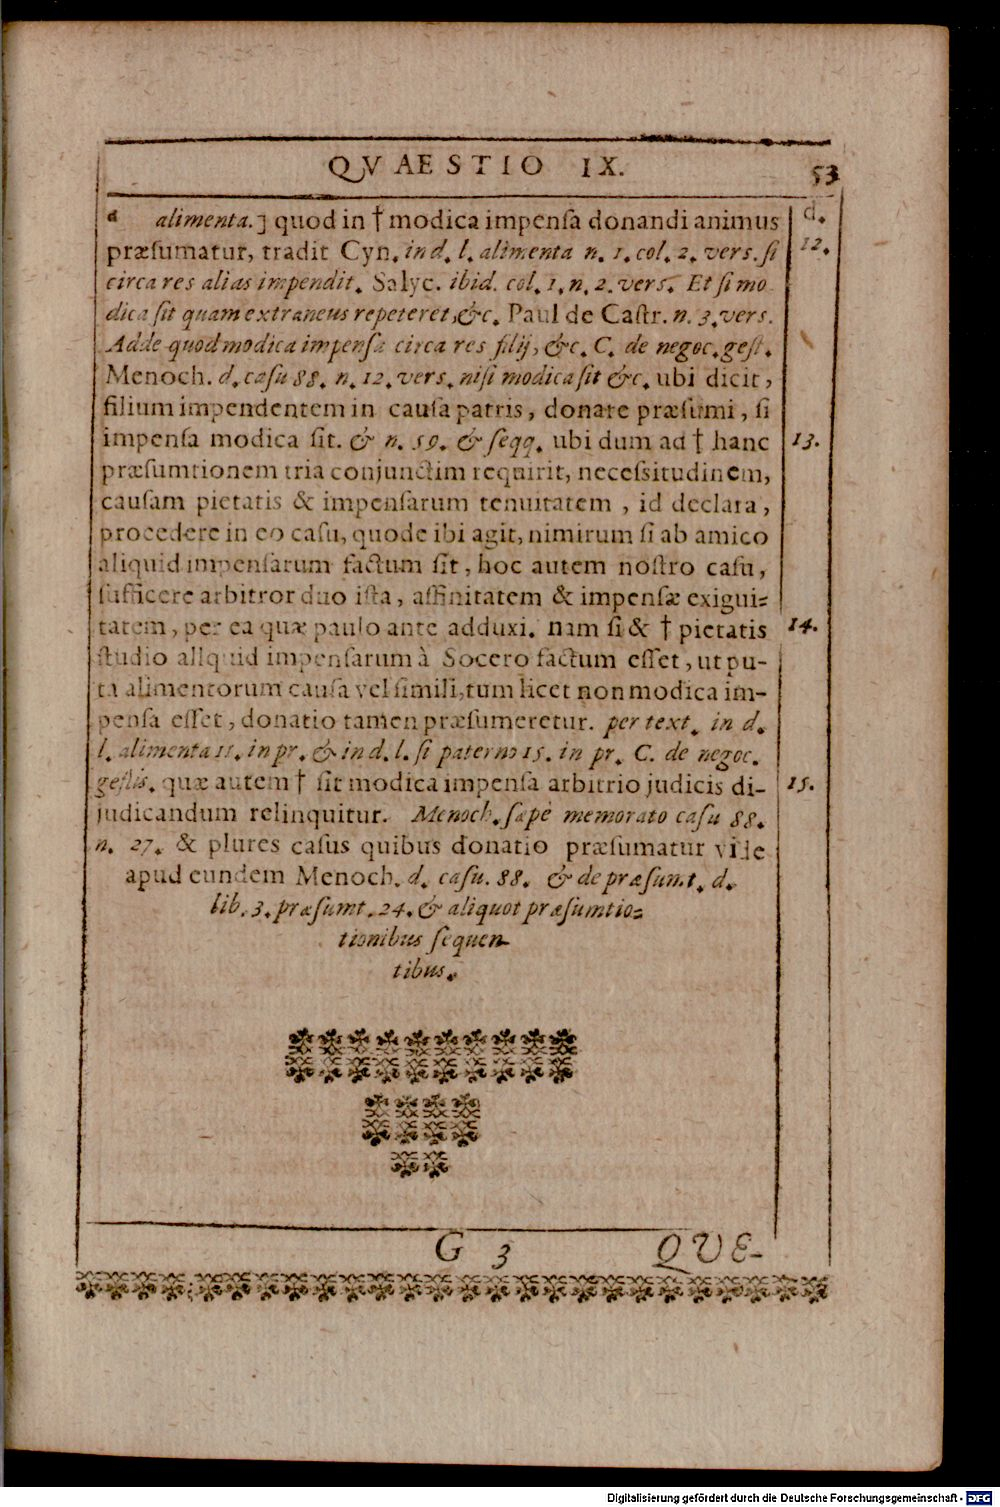 QVAESTIO IX. 53
d alimenta.] quod in † modica impensa donandi animus d.
præsumatur, tradit Cyn. in d. l. alimenta n. 1. col. 2. vers. si 12.
circa res alias impendit. Salyc. ibid. col. 1. n. 2. vers. Et si mo
dica sit quam extraneus repeteret, &c. Paul de Castr. n. 3. vers.
Adde quod modica impensa circa res filij, &c. C. de negoc. gest.
Menoch. d. casu 88. n. 12. vers. nisi modica sit &c. ubi dicit,
filium impendentem in causa patris, donare præsumi, si
impensa modica sit. & n. 59. & seqq. ubi dum ad † hanc 13.
præsumtionem tria conjunctim requirit, necessitudinem,
causam pietatis & impensarum tenuitatem, id declara,
procedere in eo casu, quode ibi agit, nimirum si ab amico
aliquid impensarum factum sit, hoc autem nostro casu,
sufficere arbitror duo ista, affinitatem & impensæ exigui=
tatem, per ea quæ paulo ante adduxi. nam si & † pietatis 14.
studio aliquid impensarum à Socero factum esset, ut pu-
ta alimentorum causa vel simili, tum licet non modica im-
pensa esset, donatio tamen præsumeretur. per text. in d.
l. alimenta 11. in pr. & in d. l. si paterno 15. in pr. C. de negoc.
gestis. quæ autem † sit modica impensa arbitrio judicis di- 15.
judicandum relinquitur. Menoch. sæpè memorato casu 88.
n. 27. & plures casus quibus donatio præsumatur vide
apud eundem Menoch. d. casu. 88. & de præsumt. d.
lib. 3. præsumt. 24. & aliquot præsumtio=
tionibus sequen-
tibus.
G 3 QVE-
Digitalisierung gefördert durch die Deutsche Forschungsgemeinschaft - DFG